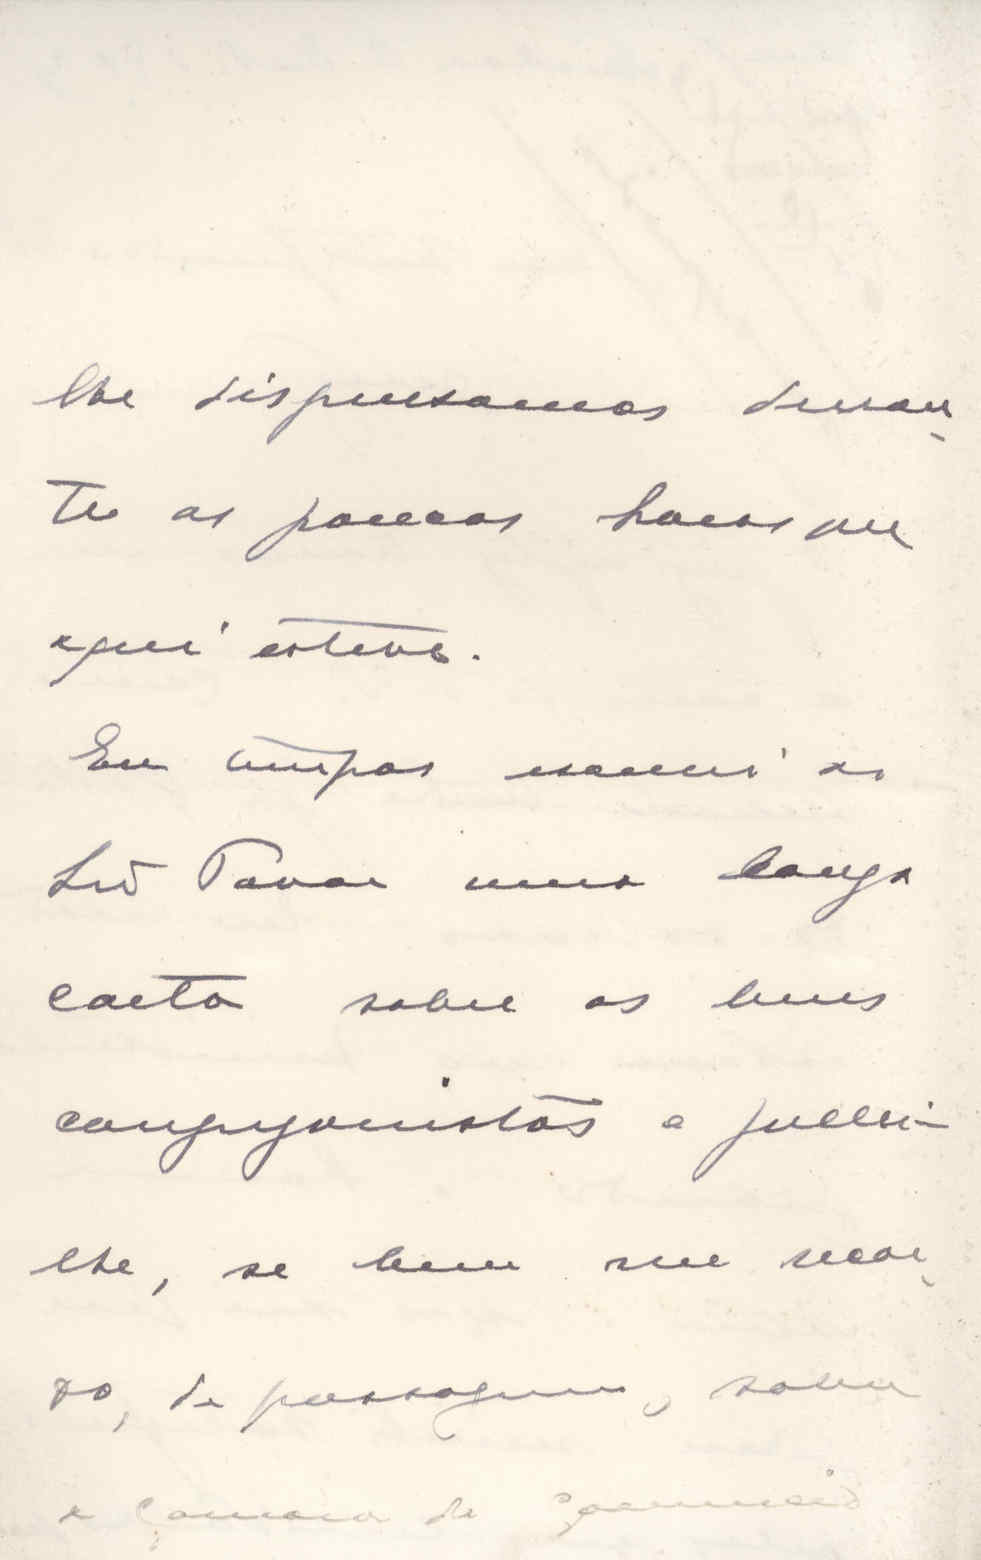 lhe dispensamos duran-
te as poucas horas que
aqui esteve.
Em tempos escrevi ao
Snr Pavão uma longa
carta sobre os bens
congregonistas e fallei-
lhe, se bem me recor-
do, de passagem, sobre
a Camara do Commercio